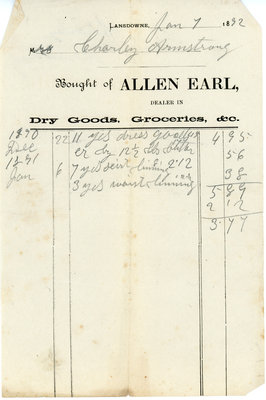 LANSDOWNE, Jan 7 1892
Mrs Charley Armstrong
Bought of ALLEN EARL,
DEALER IN
Dry Goods, Groceries, &c.
1890 22 11 yds dress goods 4 95
Dec er by 12½ lbs 56
1891 7 yds 2.12 38
Jan 6 3 yds waist lining
5 89
2 12
3.77